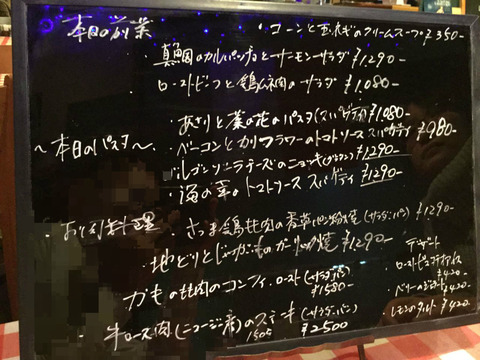 本日の前菜
・コーンと玉ねぎのクリームスープ ¥350-
・真鯛のカルパッチョとサーモンサラダ ¥1,290-
ローストビーフと鶏ムネ肉のサラダ ¥1,080-
〜本日のパスタ〜
・あさりと菜の花のパスタ(スパゲティ) ¥1,080-
・ベーコンとカリフラワーのトマトソーススパゲティ ¥980-
・ゴルゴンゾーラチーズのニョッキ(グラタン) ¥1,290-
・海の幸のトマトソーススパゲティ ¥1,290-
・お肉料理
・さつま鶏モモ肉の香草パン粉焼(サラダ・パン) ¥1290-
・地どりとじゃがいものガーリック焼 ¥1,290-
かものモモ肉のコンフィ.ロースト(サラダ.パン) ¥1580-
・牛ロース肉(ニュージー産)のステーキ 150g (サラダ.パン) ¥2500
デザート
・ローストピスタチオアイス ¥420-
・ベリーの ¥420-
・レモンのタルト ¥420-